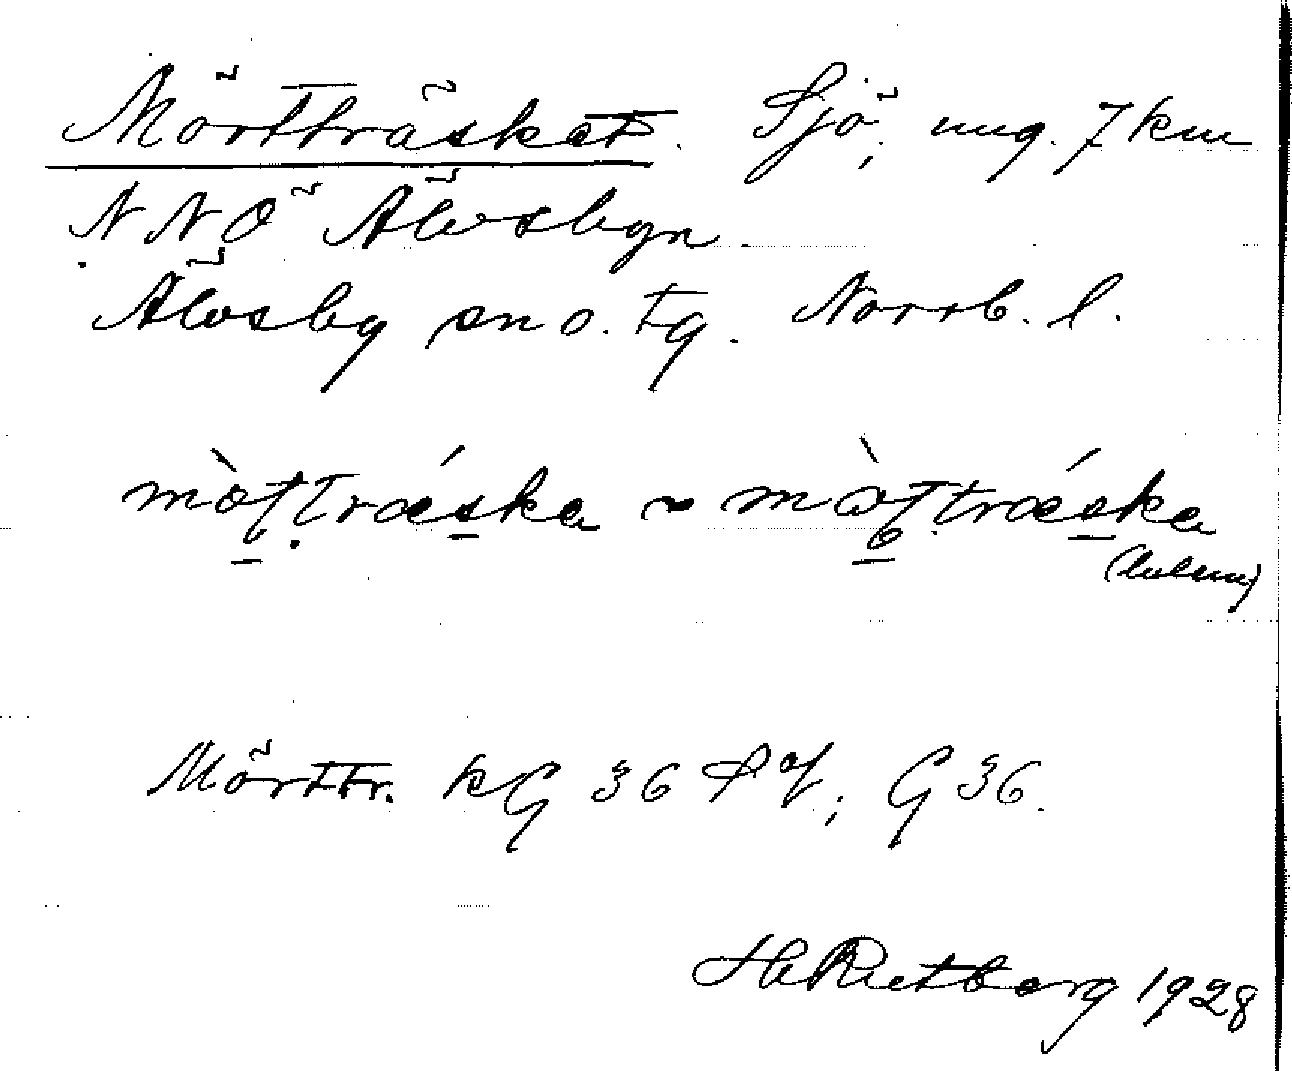 Mörtträsket. Sjö, ung. 7 km
NNÖ Älvsbyn
Älvsby sn o. tg. Norrb. l.
mòttræ´ska ~ mòttræ´ska
Mörttr. kG 36 ; G 36.
H Rutberg 1928